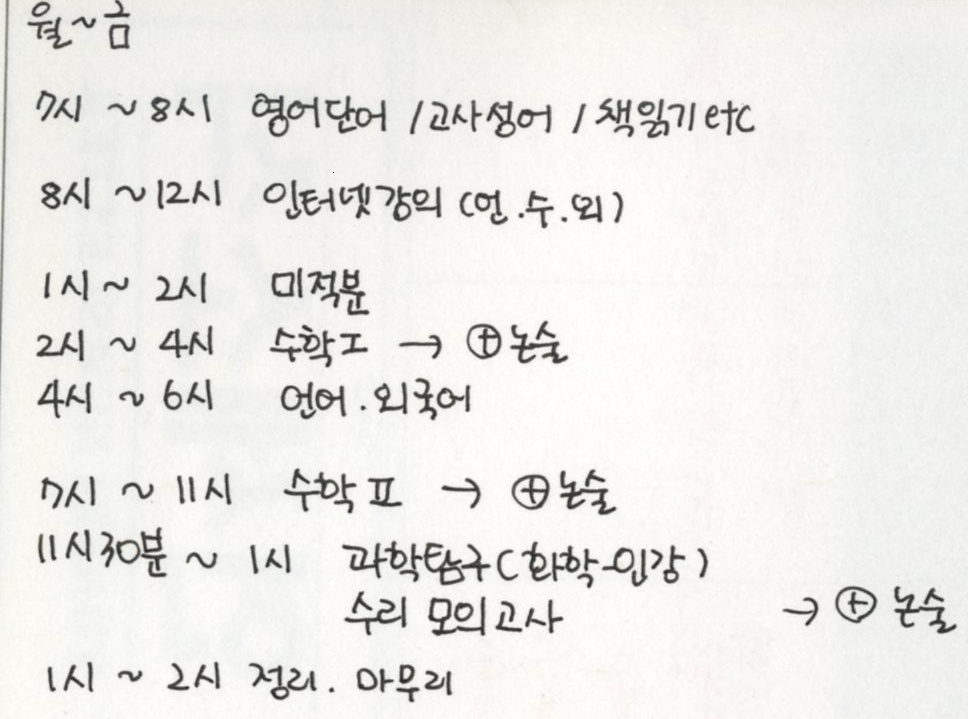 월~금
7시 ~ 8시 영어단어 / 고사성어 / 책읽기 etc
8시 ~ 12시 인터넷강의 (언.수.외)
1시 ~ 2시 미적분
2시 ~ 4시 수학Ⅰ → ⊕논술
4시 ~ 6시 언어.외국어
7시 ~ 11시 수학Ⅱ → ⊕논술
11시30분 ~ 1시 과학탐구(화학-인강)
수리 모의고사 → ⊕ 논술
1시 ~ 2시 정리. 마무리